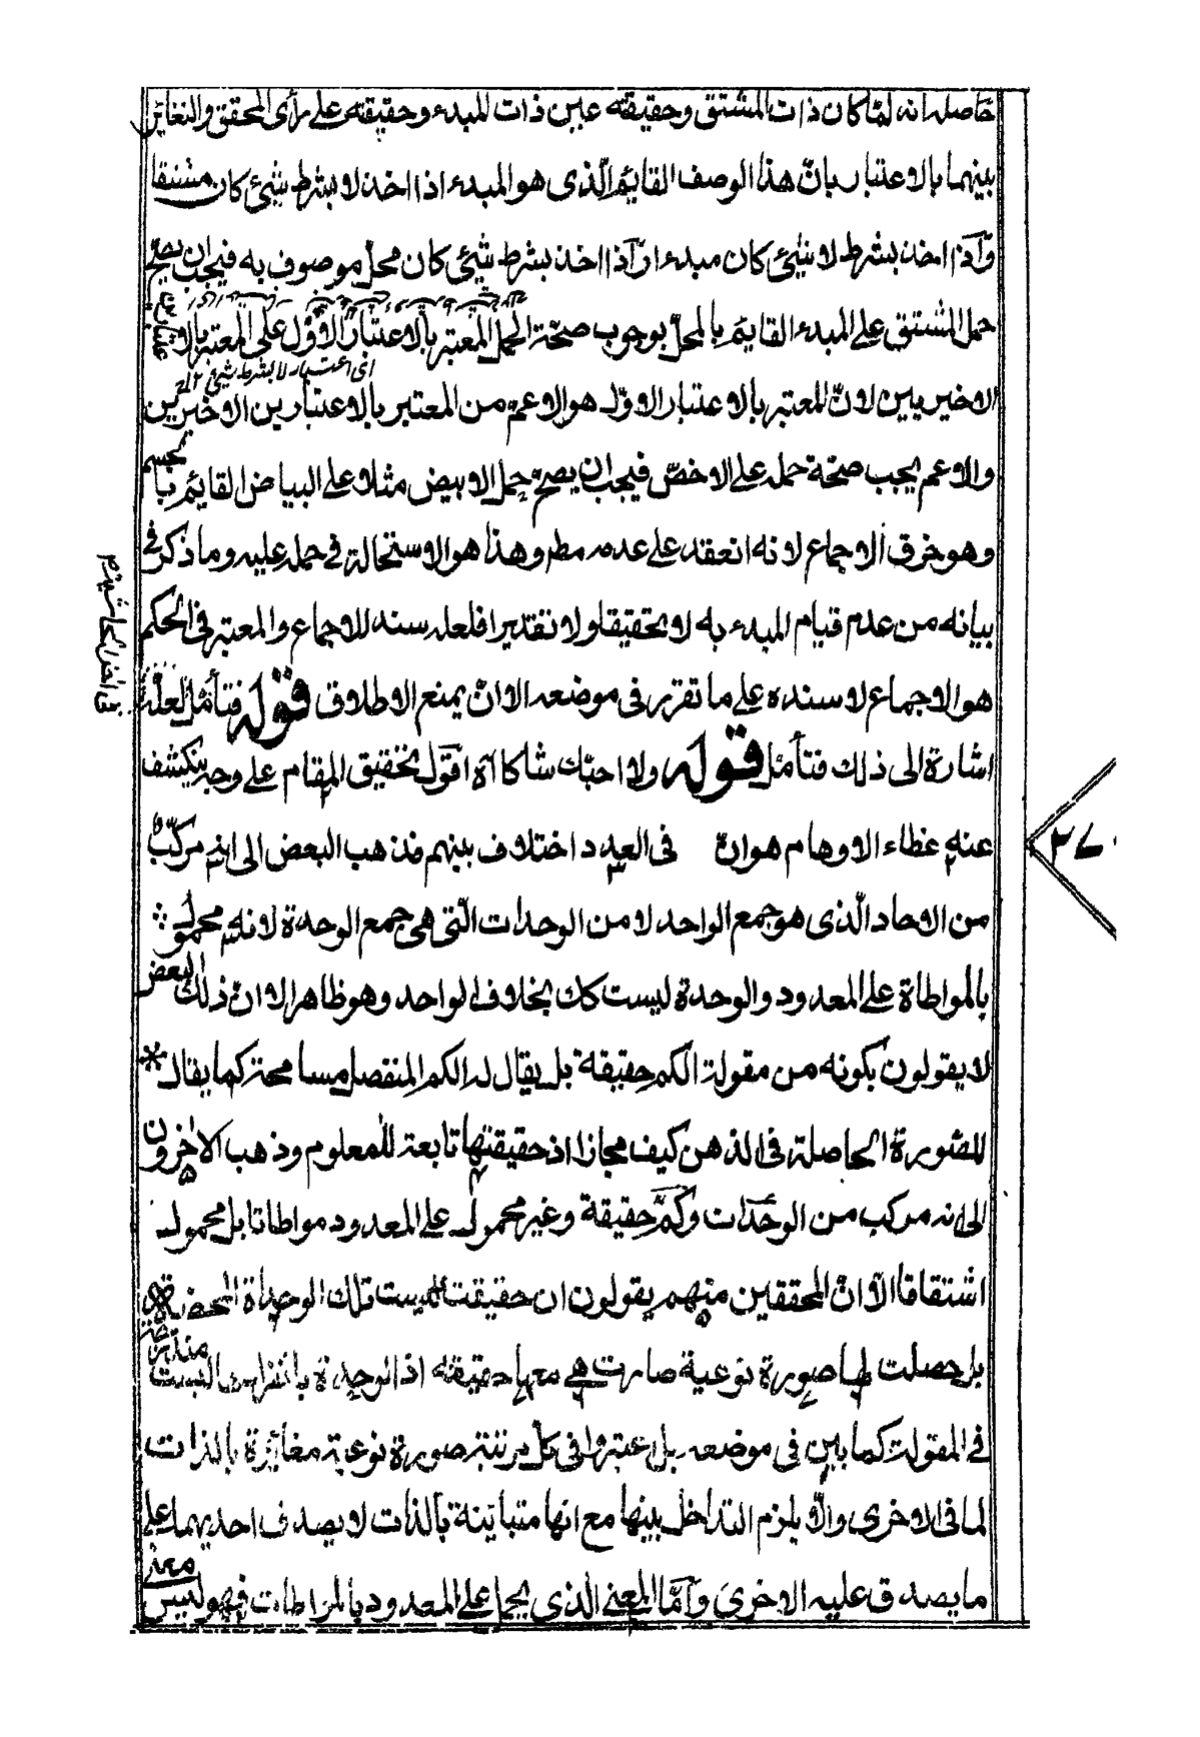 حاصله انه لمّا كان ذات المشتق وحقيقته عين ذات المبدء وحقيقته على رأى المحقق والتغاير
بينهما بالاعتبار بانّ هذا الوصف القايم الّذى هو المبدء اذا اخذ لا بشرط شيئ كان مشتقا
وّاذا اخذ بشرط لا شيئ كان مبدء وّاذا اخذ بشرط شيئ كان محل موصوف به فيجب ان يصح
حمل المشتق على المبدء القايم بالمحل بوجوب صحّة الحمل المعتبر بالاعتبار الاوّل على المعتبر بالا
اى اعتبار لا بشرط شيئ ١٢
الاخيريين لانّ المعتبر بالاعتبار الاوّل هو الاعم من المعتبر بالاعتبارين الاخيرين
والاعم يجب صحّة حمله على الاخصّ فيجب ان يصحّ حمل الابيض مثلا على البياض القايم بالجسم
وهو خرق الاجماع لانه انعقد على عدمه مطر وهذا هو الاستحالة فى حمله عليه وما ذكر فى
بيانه من عدم قيام المبدء به لا تحقيقا ولا تقديرا فلعله سند للاجماع والمعتبر فى الحكم
هو الاجماع لا سنده على ما تقرر فى موضعه الا انّ يمنع الاطلاق قوله فتأمّل لعله
اشارة الى ذلك فتأمل قوله ولا احبّك شاكا آه اقول تحقيق المقام على وجه ينكشف
عنه غطاء الاوهام هو انّ فى العدد اختلاف بينهم فذهب البعض الى انه مركّب
من الاحاد الّذى هو جمع الواحد لا من الوحدات الّتى هى جمع الوحدة لانه محمول
بالمواطاة على المعدود والوحدة ليست كك بخلاف الواحد وهو ظاهر الا انّ ذلك البعض
لا يقولون بكونه من مقولة الكم حقيقة بل يقال له الكم المنفصل مسامحة كما يقال
للصّورة الحاصلة فى الذهن كيف مجازا اذ حقيقتها تابعة للمعلوم وذهب الاخرون
الى انه مركب من الوحدات وكم حقيقة وغير محمول على المعدود مواطاتا بل محمول
اشتقاقا الّا انّ المحققين منهم يقولون ان حقيقته ليست تلك الوحداة المحضة
بل حصلت لها صورة نوعية صارت هى معها حقيقته اذ الوحدة بانفرادها ليست مندرجة
فى المقولة كما بين فى موضعه بل اعتبروا فى كل مرتبة صورة نوعية مغايرة بالذات
لما فى الاخرى والّا يلزم التداخل بينها مع انها متباينة بالذات لا يصدق احديهما على
ما يصدق عليه الاخرى وآمّا المعنى الّذى يحمل على المعدود بالمواطات فهو ليس معنى
٢٧